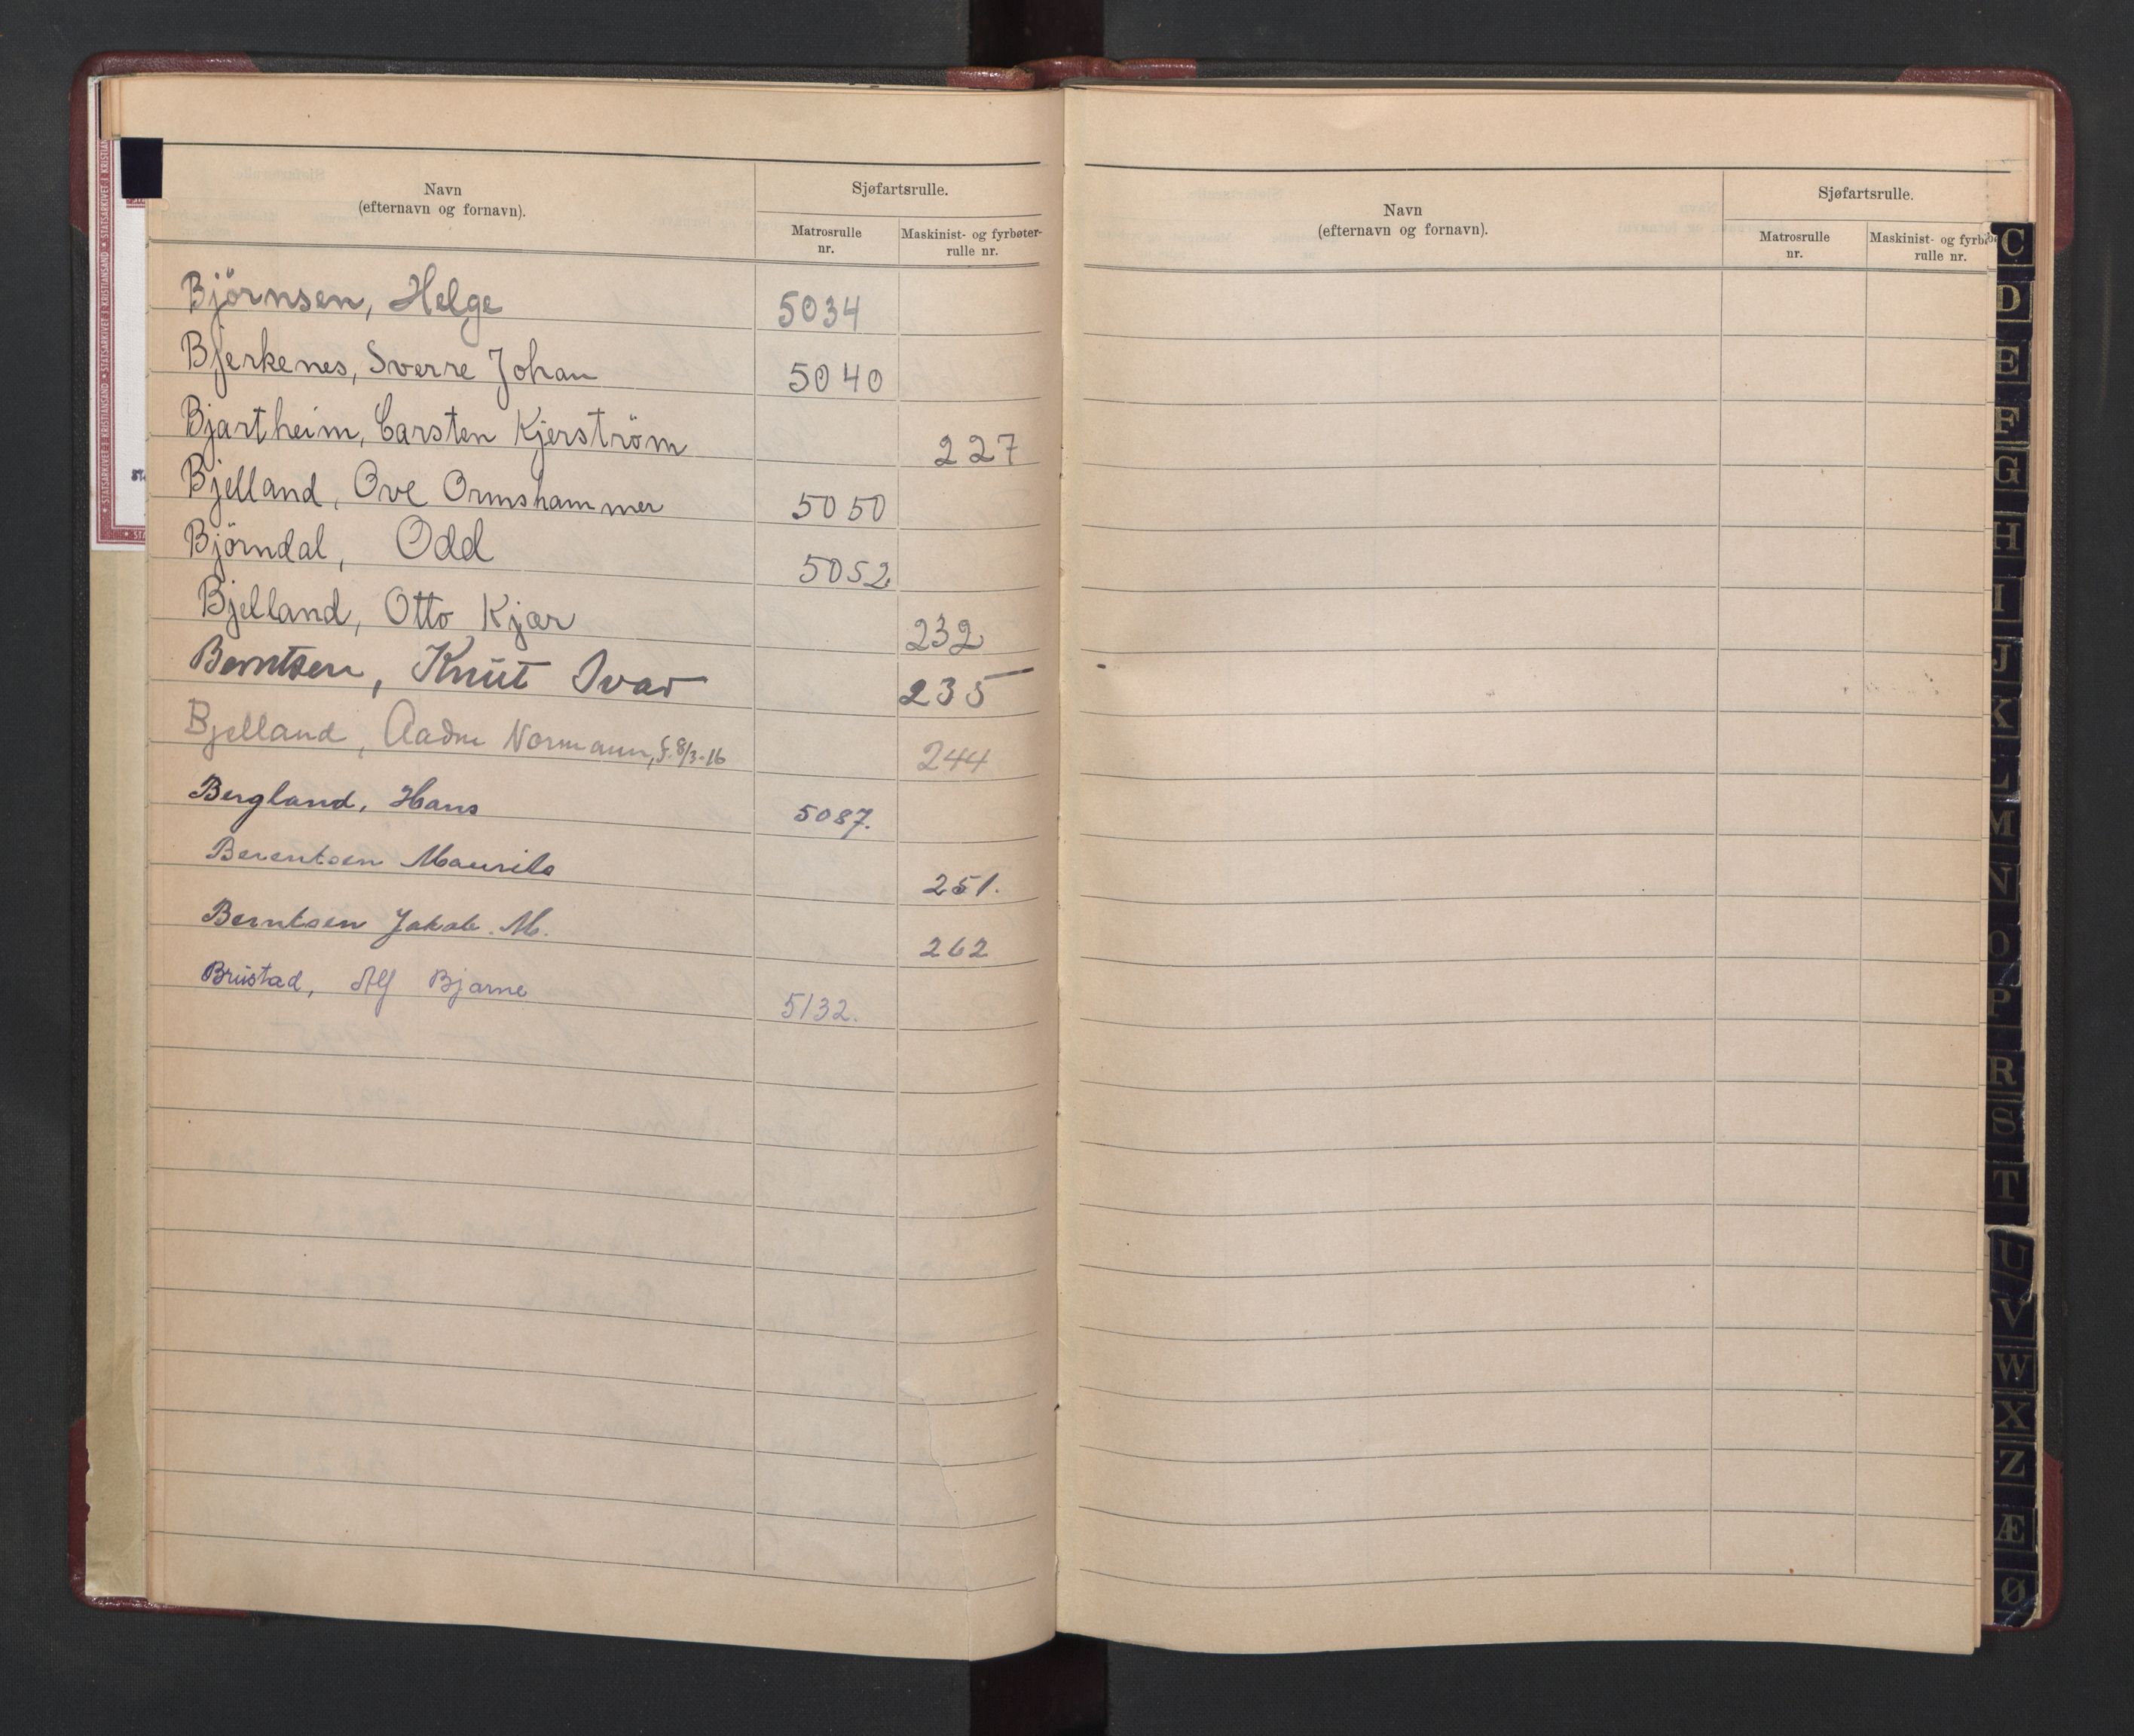 Navn
(efternavn og fornavn).
Sjøfartsrulle.
Matrosrulle
nr.
Maskinist- og fyrbøter-
rulle nr.
Björnsen, Helge 5034
Bjerkenes, Sverre Johan 5040
Bjartheim, Carsten Kjerström 227
Bjelland, Ove Ormshammer 5050
Björndal, Odd 5052.
Bjelland, Otto Kjær 232
Berntsen, Knut Ivar 235
Bjelland, Aadne Normann, f. 8/3-16 244
Bergland, Hans 5087.
Berentsen Maurits 251.
Berntsen Jakob. M. 262
Brustad, Alf Bjarne 5132.
Navn
(efternavn og fornavn).
Sjøfartsrulle.
Matrosrulle
nr.
Maskinist- og fyrbø
rulle nr.
C
D
E
F
G
H
I
J
K
L
M
N
O
P
R
S
T
U
V
W
X
Z
Æ
Ø
STATSARKIVET I KRISTIANSAND • STATSARKIVET I KRISTIANSAND